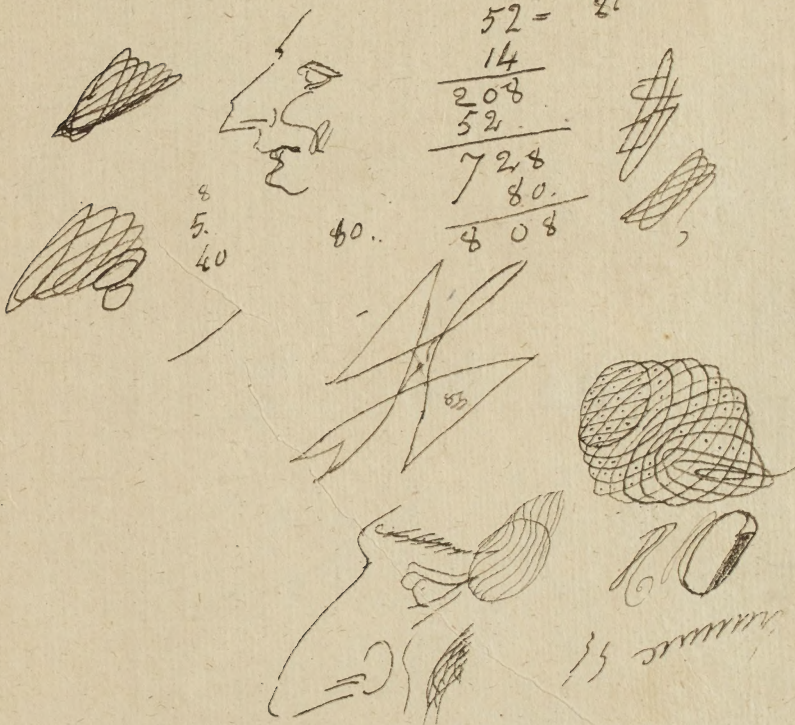 52 =
14
208
52
728
80.
808
8
5.
40
80..